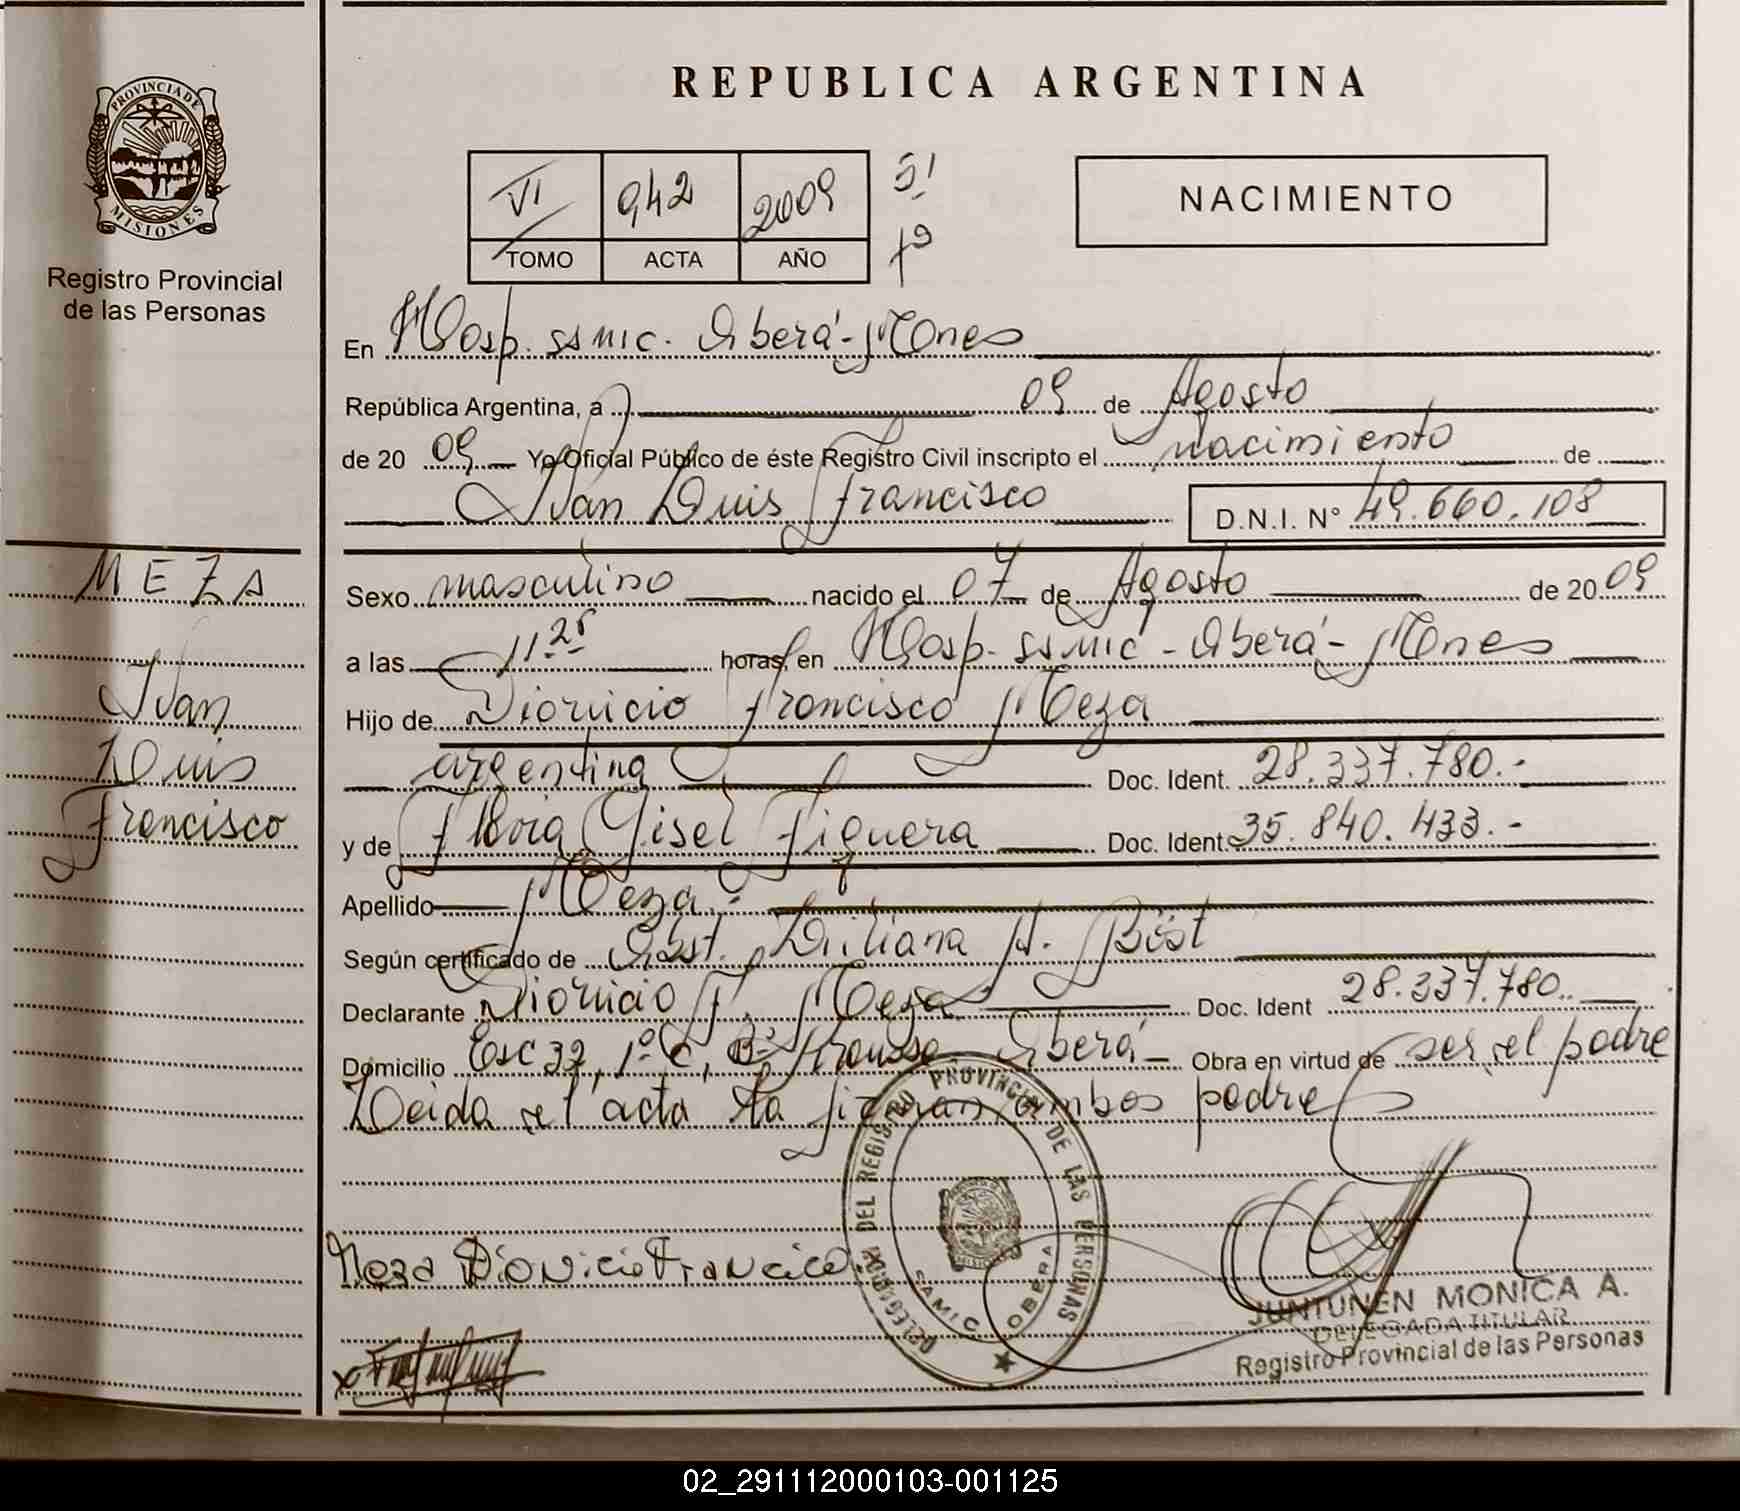 REPUBLICA ARGENTINA
PROVINCIA DE
MISIONES
Registro Provincial
de las Personas
VI 942 2009 51
TOMO ACTA AÑO fº
NACIMIENTO
En Hosp. ssmic. Oberá-Mones
República Argentina, a 09 de Agosto
de 2009 Yo Oficial Público de éste Registro Civil inscripto el nacimiento de
Iván Luis Francisco D.N.I. Nº 49.660.108
MEZA
Iván
Luis
Francisco
Sexo masculino nacido el 07 de Agosto de 2009
a las 11 25 horas, en Hosp. ssmic - Oberá - Mones
Hijo de Dionicio Francisco Meza
argentina Doc. Ident. 28.337.780.-
y de Gisel Figuera Doc. Ident. 35.840.433.-
Apellido Meza.-
Según certificado de Obst. Liliana A. Böst
Declarante Dionicio F. Meza Doc. Ident 28.337.780.
Domicilio Esc 32, 1º C, Oberá Obra en virtud de ser el padre
Leida el acta la firman ambos padres
Meza Dionicio Francico
DELEGACION DEL REGISTRO PROVINCIAL DE LAS PERSONAS
SAMIC OBERA
JUNTUNEN MONICA A.
DELEGADA TITULAR
Registro Provincial de las Personas
02_291112000103-001125